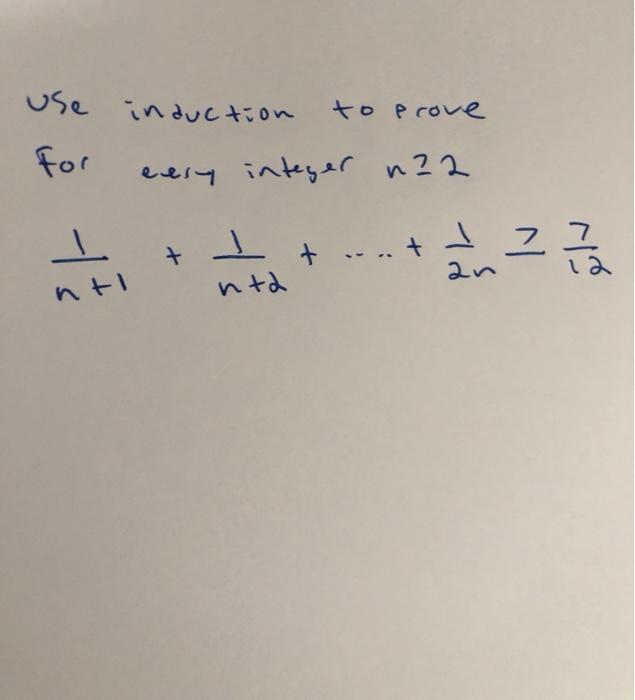 Use induction to prove
For eery integer n ≥ 2
1/(n+1) + 1/(n+2) + ..... + 1/(2n) ≥ 7/12